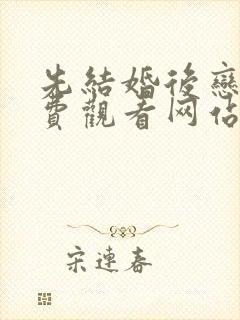 先結婚後戀
費觀看网佔
宋連春